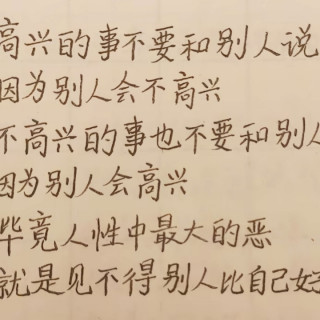 高兴的事不要和别人说
因为别人会不高兴
不高兴的事也不要和别人
因为别人会高兴
毕竟人性中最大的恶
就是见不得别人比自己好